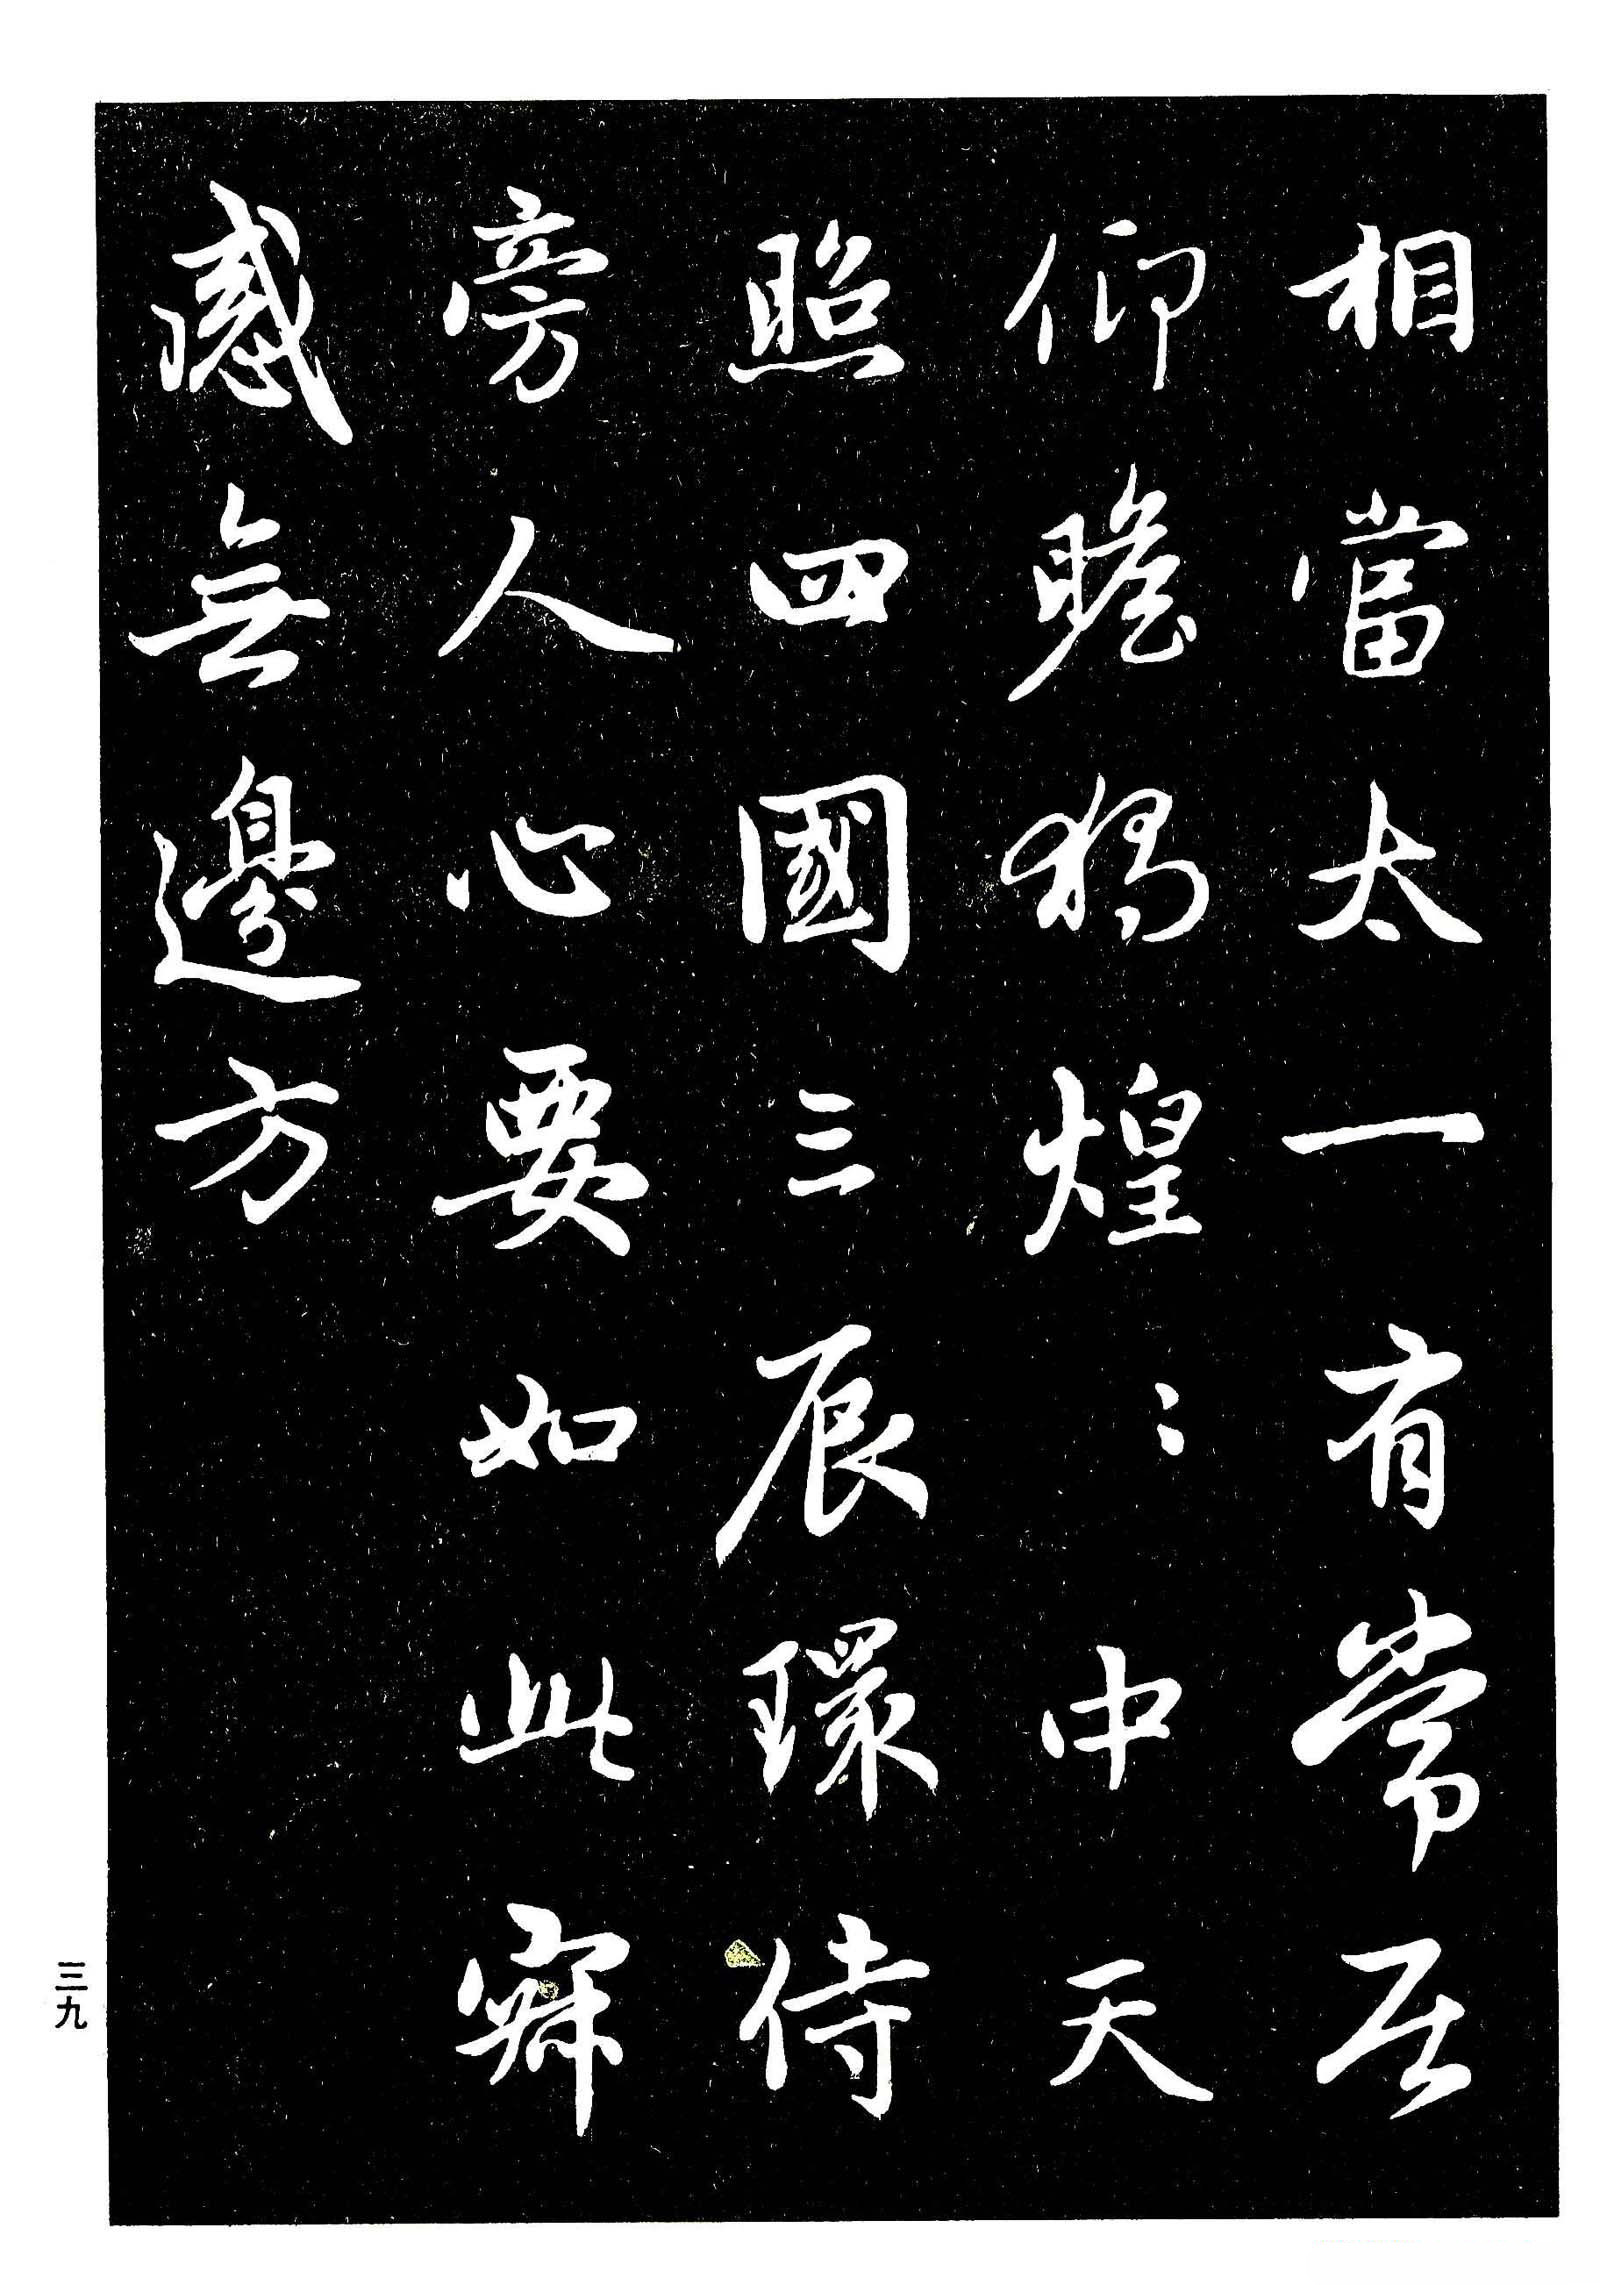 相當太一有常居
仰瞻獨煌〻中天
照四國三辰環侍
旁人心要如此寂
感無邊方
三九